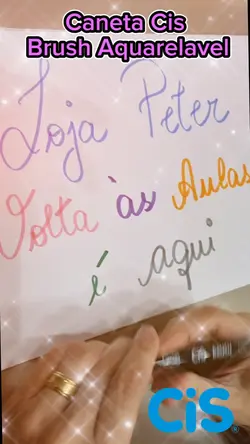 Caneta Cis
Brush Aquarelavel
Loja Peter
Volta às Aulas
é aqui
CiS